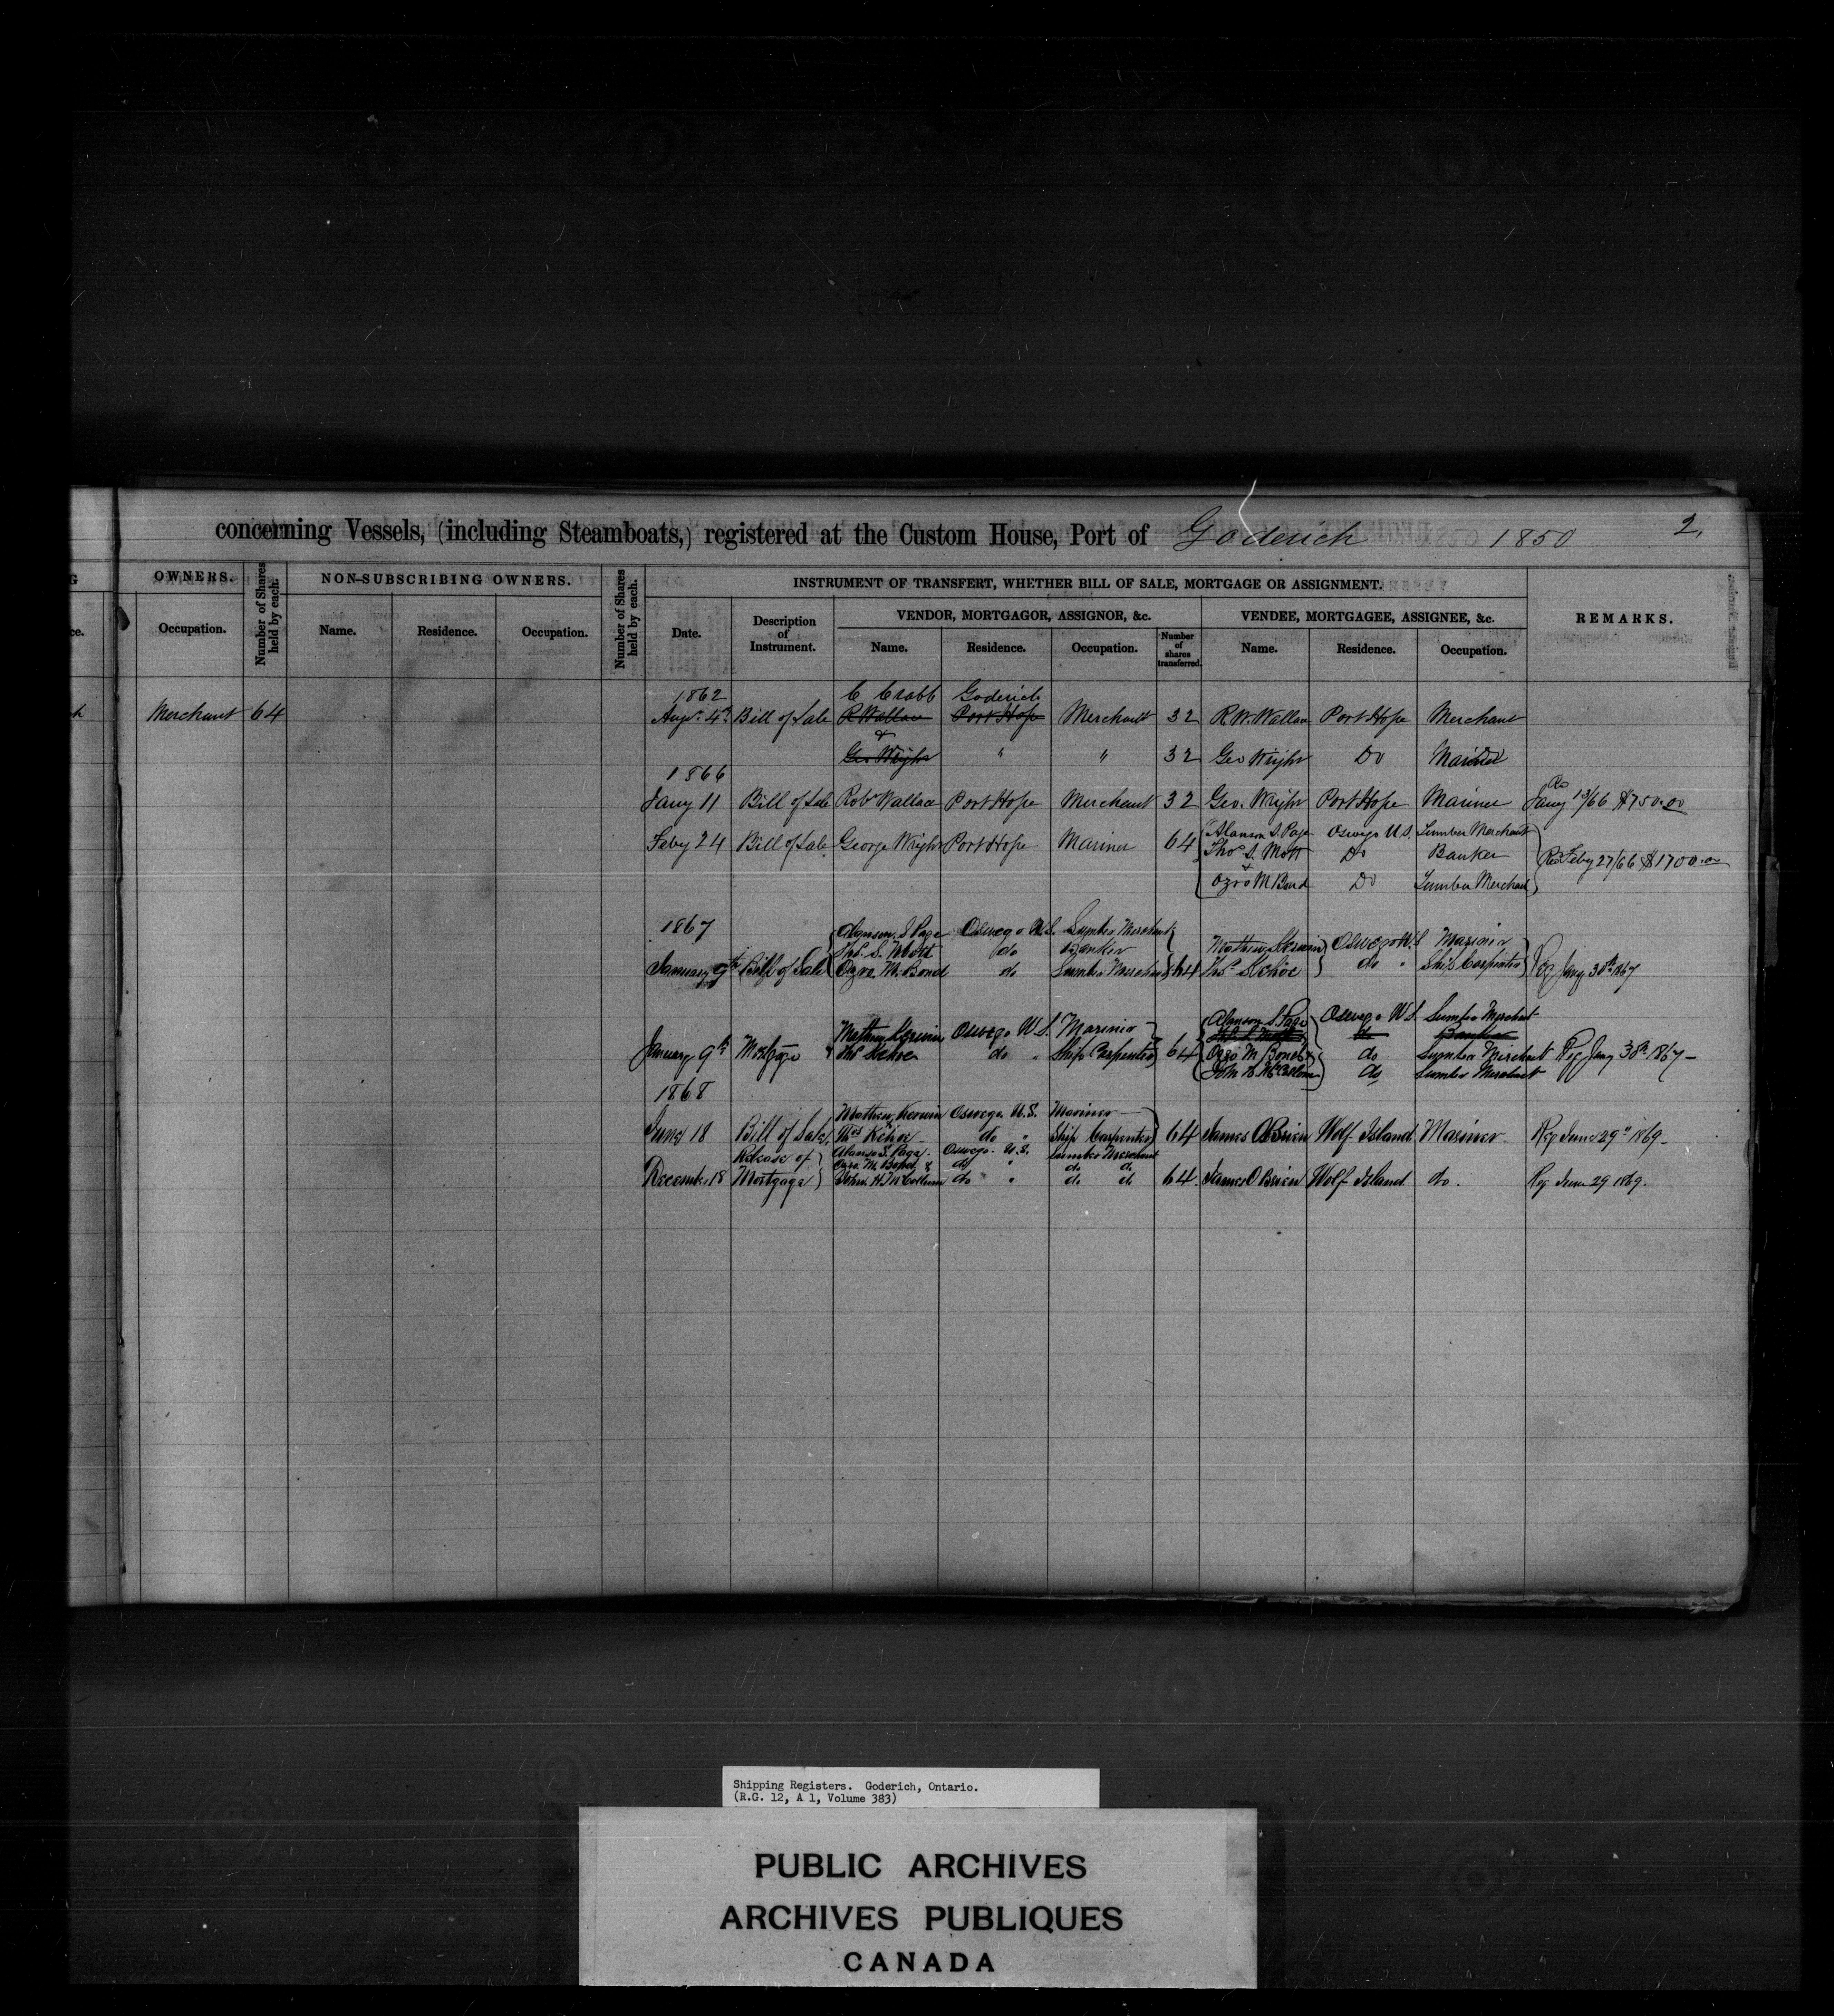 concerning Vessels, (including Steamboats,) registered at the Custom House, Port of Goderich 1850 2.
OWNERS. Number of Shares held by each. NON-SUBSCRIBING OWNERS. Number of Shares held by each. INSTRUMENT OF TRANSFERT, WHETHER BILL OF SALE, MORTGAGE OR ASSIGNMENT.
VENDOR, MORTGAGOR, ASSIGNOR, &c. VENDEE, MORTGAGEE, ASSIGNEE, &c. REMARKS.
Occupation. Name. Residence. Occupation. Date. Description of Instrument. Name. Residence. Occupation. Number of shares transferred. Name. Residence. Occupation.
1862 C Crabb Goderich
Merchant 64 Augt 4th Bill of Sale R Wallace Port Hope Merchant 32 R. W. Wallace Port Hope Merchant
&
Geo Wright " " 32 Geo Wright Do
1866
Jany 11 Bill of Sale Robt Wallace Port Hope Merchant 32 Geo. Wright Port Hope Mariner Jany 13/66 $750.00
Alanson S. Page Oswego U.S. Lumber Merchant
Feby 24 Bill of Sale George Wright Port Hope Mariner 64 Thos S. Mott Do Banker Feby 27/66 $1700.00
&
Ozro M Bond Do Lumber Merchant
1867 Alanson S Page Oswego U.S. Lumber Merchant
Thos. S. Mott do Banker Mathew Kerwin Oswego U.S Mariner
January 9th Bill of Sale Ozro M. Bond do Lumber Merchant 64 Thos Kehoe do " Ship Carpenter Reg Jany 30th 1867
Alanson S Page Oswego U S Lumber Merchant
Mathew Kerwin Oswego U S. Mariner Thos S Mott do Banker
January 9th Mortgage & Thos Kehoe do " Ship Carpenter 64 Ozro M Bond & do Lumber Merchant Reg Jany 30th 1867 -
John H McCollum do Lumber Merchant
1868
Mathew Kerwin Oswego U.S. Mariner
June 18 Bill of Sale Thos Kehoe do " Ship Carpenter 64 James O'Brien Wolf Island Mariner Reg June 29th 1869 -
Release of Alanson S. Page Oswego U.S. Lumber Merchant
Ozro M. Bond & do " do do
December 18 Mortgage John H McCollum do " do do 64. James O'Brien Wolf Island do. Reg June 29 1869.
Shipping Registers. Goderich, Ontario.
(R.G. 12, A 1, Volume 383)
PUBLIC ARCHIVES
ARCHIVES PUBLIQUES
CANADA